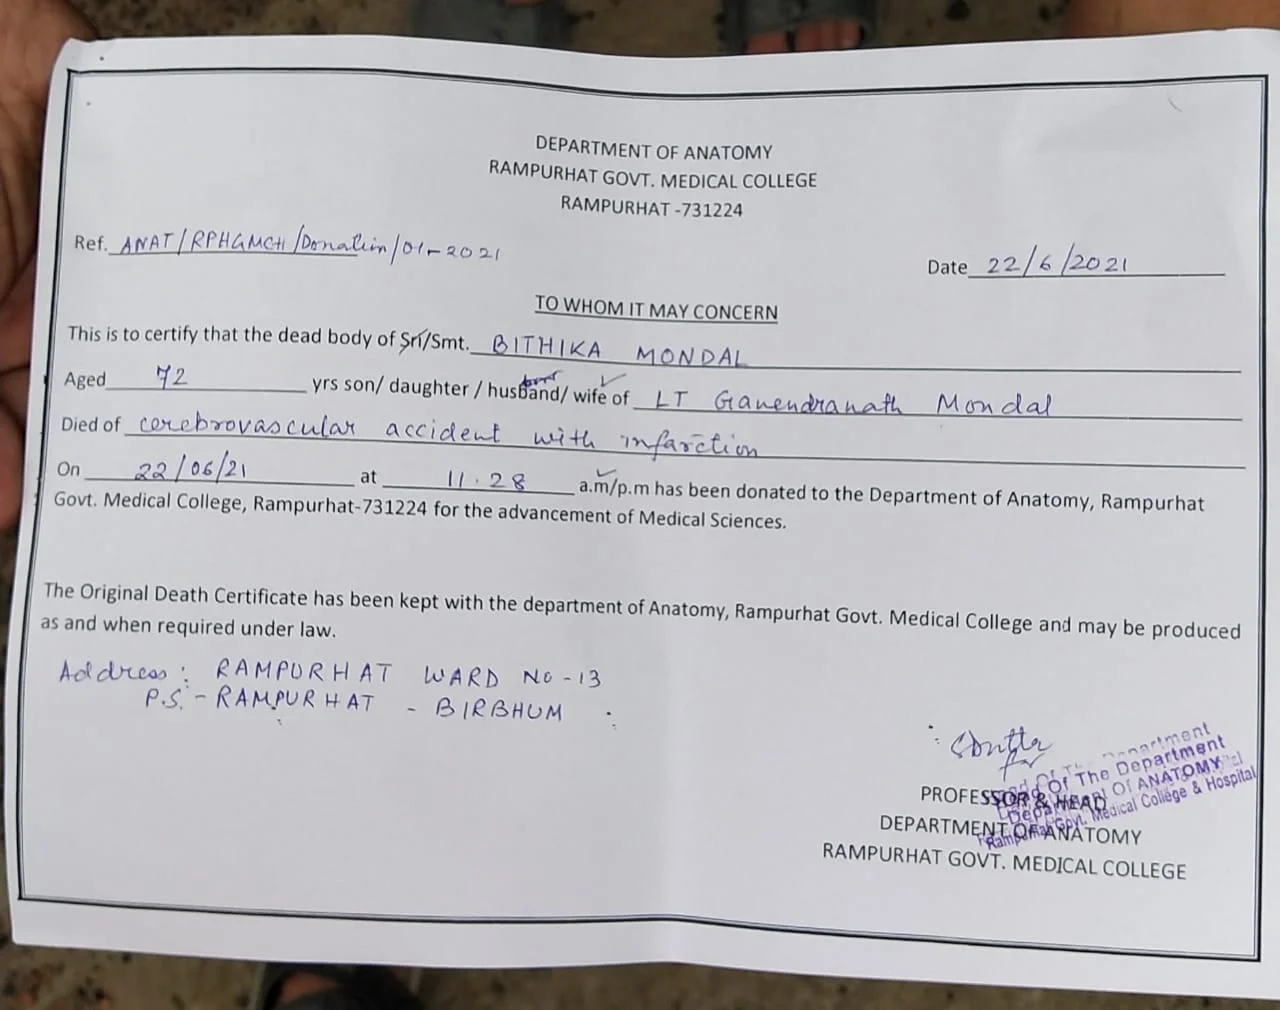 DEPARTMENT OF ANATOMY
RAMPURHAT GOVT. MEDICAL COLLEGE
RAMPURHAT -731224
Ref. ANAT/RPHGMCH/Donation/01-2021
Date 22/6/2021
TO WHOM IT MAY CONCERN
This is to certify that the dead body of Sri/Smt. BITHIKA MONDAL
Aged 72 yrs son/ daughter / husband/ wife of LT Ganendranath Mondal
Died of cerebrovascular accident with infarction
On 22/06/21 at 11.28 a.m/p.m has been donated to the Department of Anatomy, Rampurhat
Govt. Medical College, Rampurhat-731224 for the advancement of Medical Sciences.
The Original Death Certificate has been kept with the department of Anatomy, Rampurhat Govt. Medical College and may be produced
as and when required under law.
Address: RAMPURHAT WARD NO-13
P.S.- RAMPURHAT - BIRBHUM
for
PROFESSOR & HEAD
DEPARTMENT OF ANATOMY
RAMPURHAT GOVT. MEDICAL COLLEGE
Of The Department
Of ANATOMY
Rampurhat Govt. Medical College & Hospital